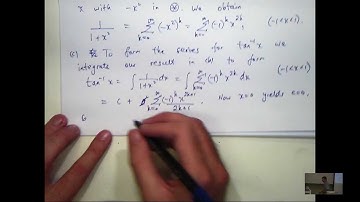 x with -x² in ⊛ we obtain
1/(1+x²) = ∑_{k=0}^{∞} (-x²)^k = ∑_{k=0}^{∞} (-1)^k x^{2k}, (-1<x<1).
(c) To form the series for tan⁻¹x we
integrate our result in (b) to form
tan⁻¹x = ∫ 1/(1+x²) dx = ∫ ∑_{k=0}^{∞} (-1)^k x^{2k} dx (-1<x<1)
= C + ∑_{k=0}^{∞} (-1)^k x^{2k+1}/(2k+1). Now x=0 yields